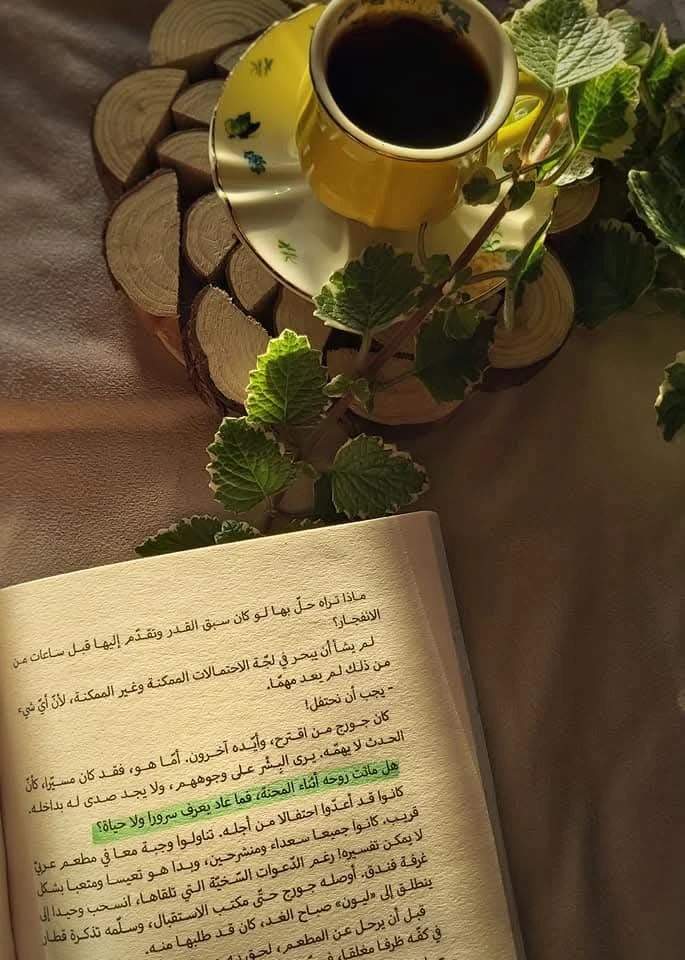 ماذا تراه حلّ بها لو كان سبق القدر وتقدّم إليها قبل ساعات من
الانفجار؟
لم يشأ أن يبحر في لجّة الاحتمالات الممكنة وغير الممكنة، لأنّ أيّ شيء
من ذلك لم يعد مهمّا.
- يجب أن نحتفل!
كان جورج من اقترح، وأيّده آخرون. أمّا هو، فقد كان مسيّرا، كأنّ
الحدث لا يهمّه. يرى البِشْر على وجوههم، ولا يجد صدى له بداخله.
هل ماتت روحه أثناء المحنة، فما عاد يعرف سرورا ولا حياة؟
كانوا قد أعدّوا احتفالا من أجله. تناولوا وجبة معا في مطعم عربيّ
قريب. كانوا جميعا سعداء ومنشرحين، وبدا هو تعيسا ومتعبا بشكل
لا يمكن تفسيره! رغم الدّعوات السّخيّة التي تلقاها، انسحب وحيدا إلى
غرفة فندق. أوصله جورج حتّى مكتب الاستقبال، وسلّمه تذكرة قطار
ينطلق إلى «ليون» صباح الغد، كان قد طلبها منه.
قبل أن يرحل عن المطعم، لحق به
في كفّه ظرفا مغلقا،